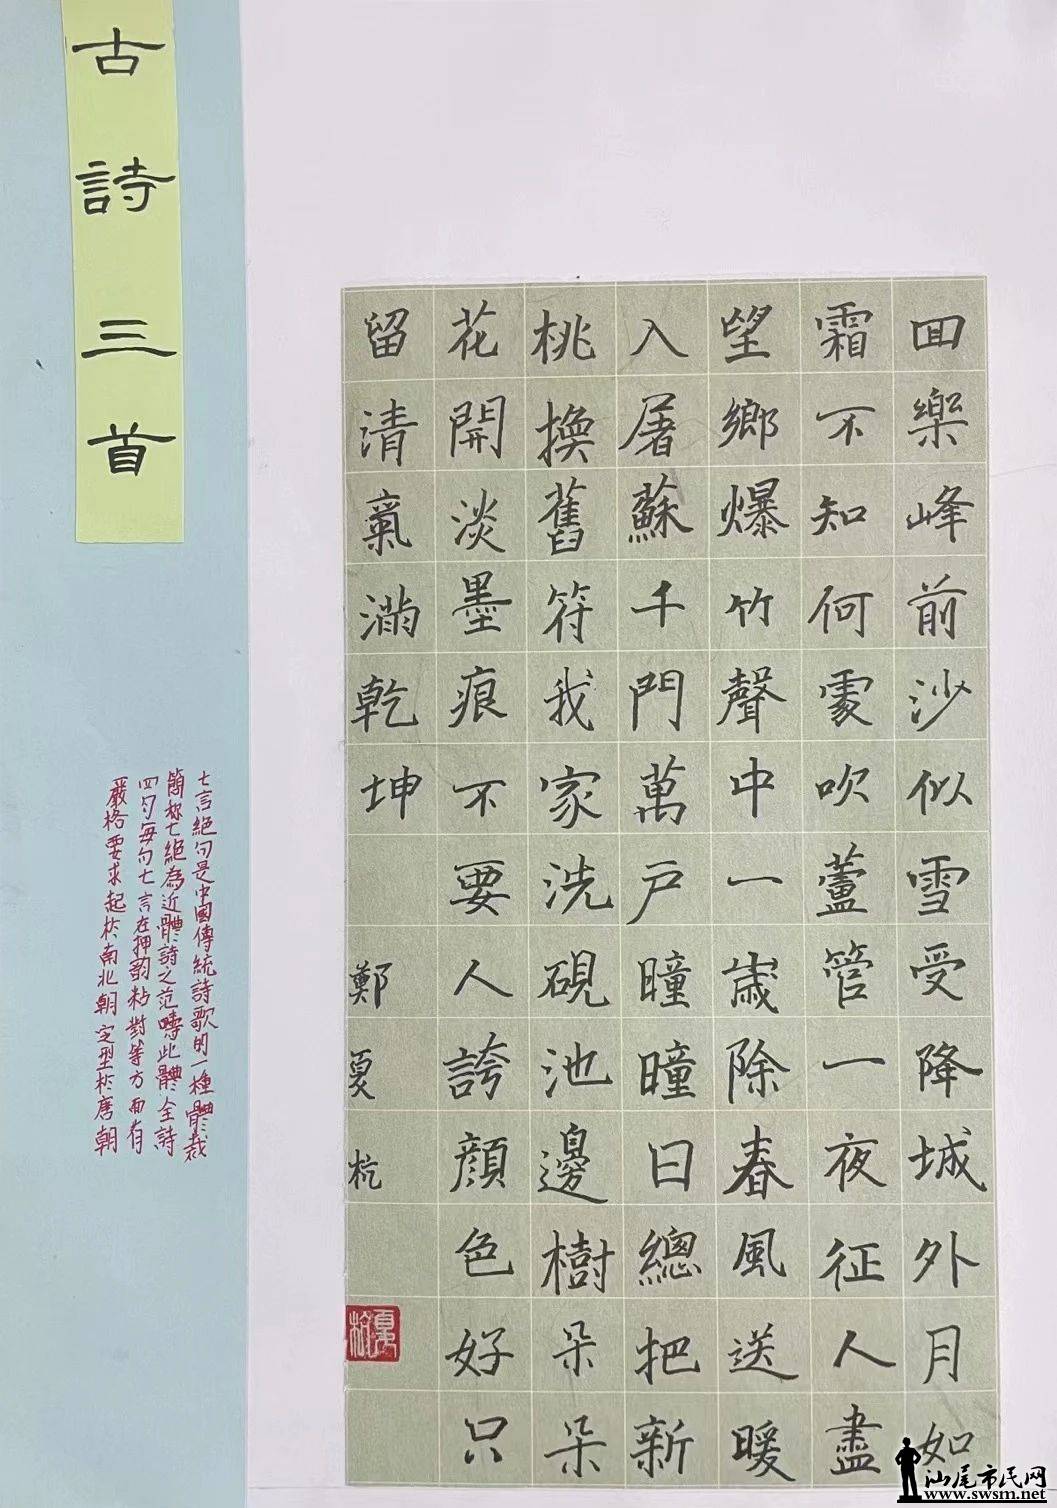 回樂峰前沙似雪受降城外月如
霜不知何處吹蘆管一夜征人盡
望鄉爆竹聲中一歲除春風送暖
入屠蘇千門萬戶瞳瞳日總把新
桃換舊符我家洗硯池邊樹朵朵
花開淡墨痕不要人誇顏色好只
留清氣滿乾坤
鄭夏杭
夏杭
古詩三首
七言絕句是中國傳統詩歌的一種體裁
簡称七絕為近體詩之范疇此體全詩
四句每句七言在押韵粘對等方面有
嚴格要求起於南北朝定型於唐朝
汕尾市民网
www.swsm.net